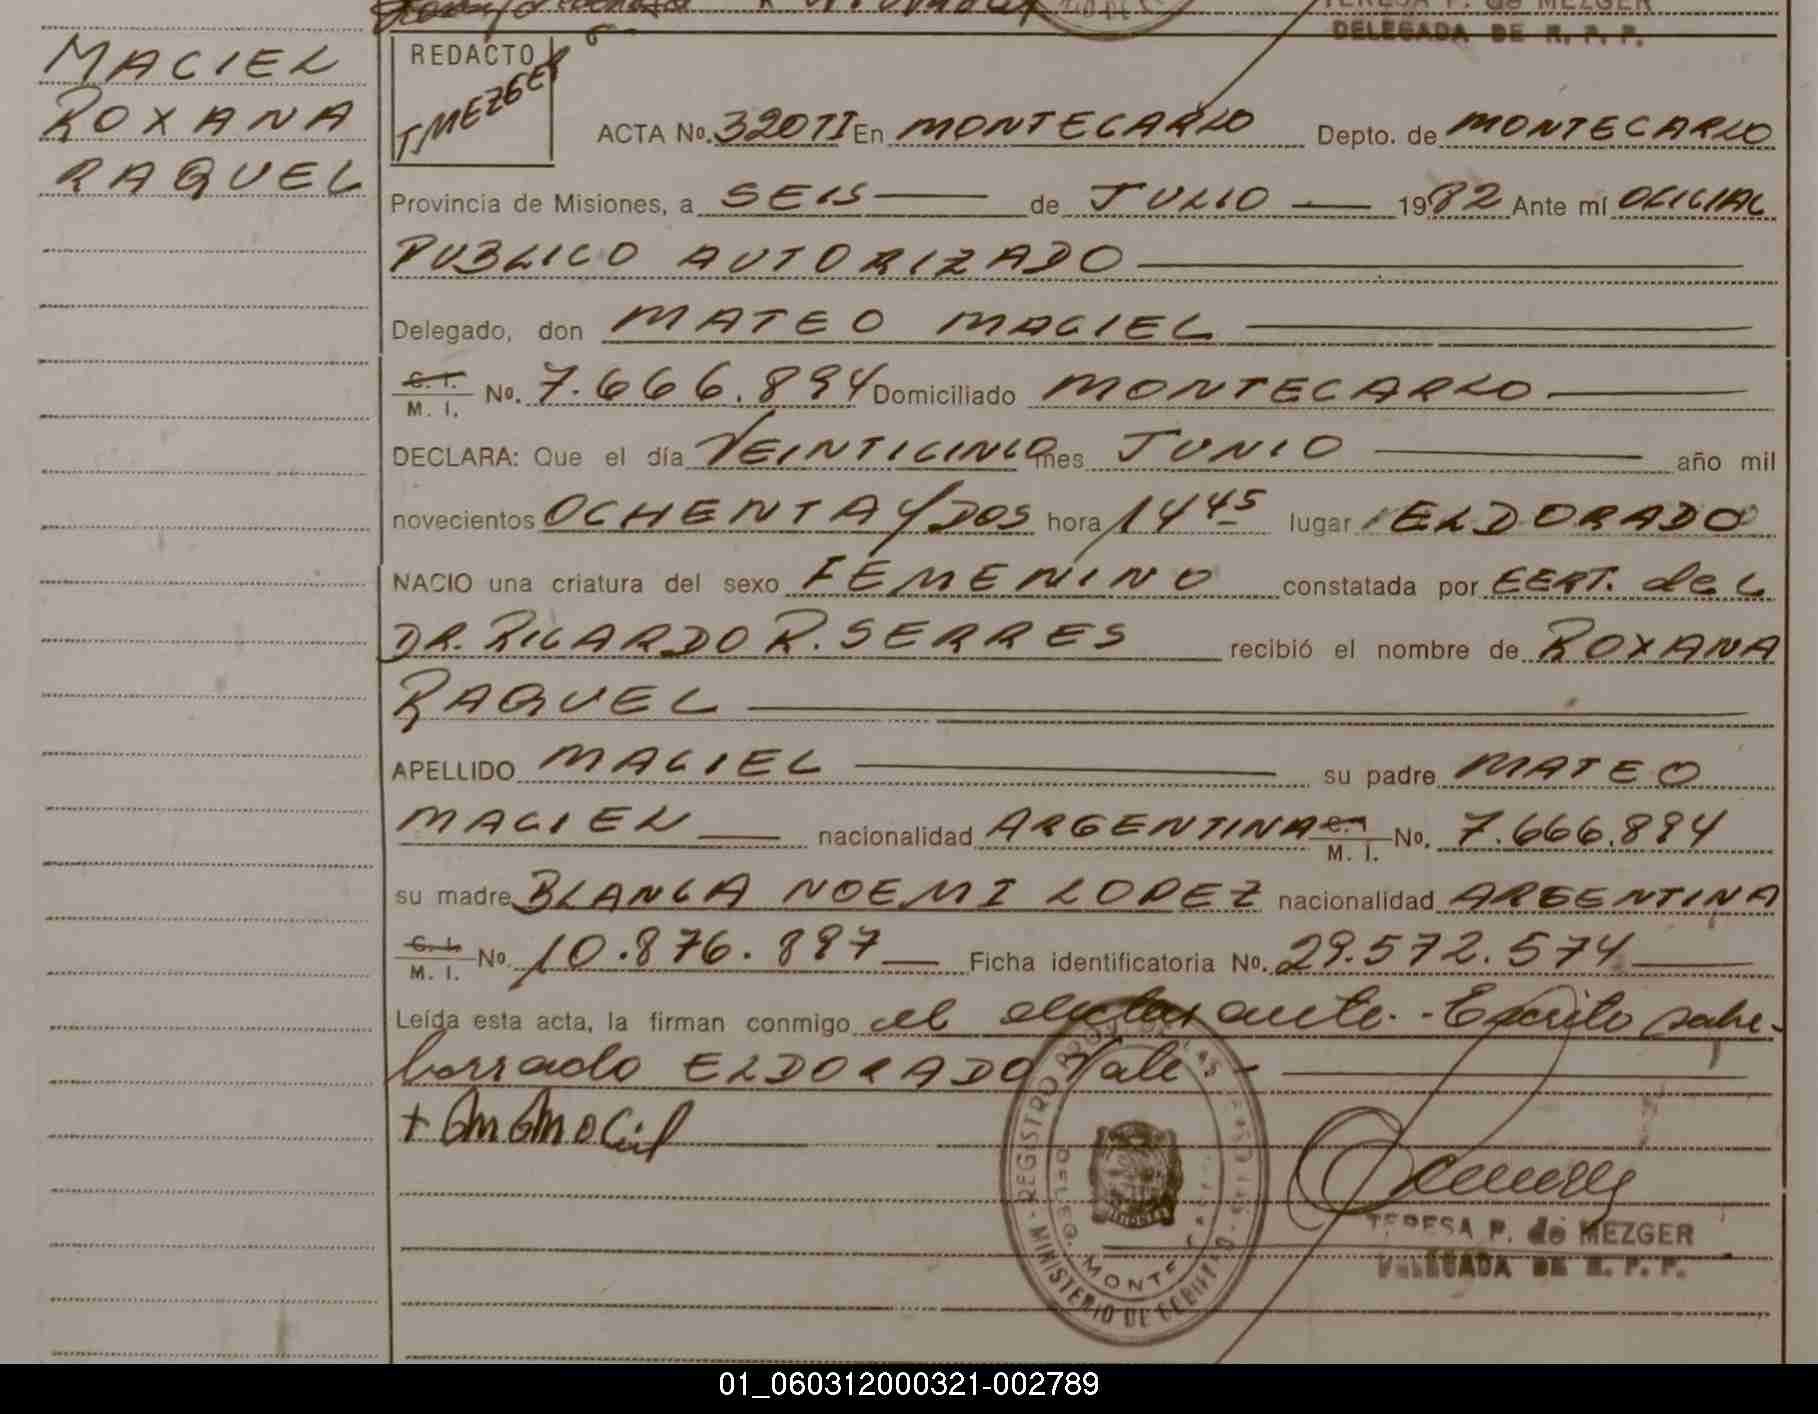 TERESA P. de MEZGER
DELEGADA DE R. P. P.
MACIEL
ROXANA
RAQUEL
REDACTO
T MEZGER
ACTA No. 320TI En MONTECARLO Depto. de MONTECARLO
Provincia de Misiones, a SEIS de JULIO 1982 Ante mí OFICIAL
PUBLICO AUTORIZADO
Delegado, don MATEO MACIEL
C. I. M. I. No. 7.666.894 Domiciliado MONTECARLO
DECLARA: Que el día VEINTICINCO mes JUNIO año mil
novecientos OCHENTA Y DOS hora 14 45 lugar ELDORADO
NACIO una criatura del sexo FEMENINO constatada por CERT. del
DR. RICARDO R. SERRES recibió el nombre de ROXANA
RAQUEL
APELLIDO MACIEL su padre MATEO
MACIEL nacionalidad ARGENTINA C. I. M. I. No. 7.666.894
su madre BLANCA NOEMI LOPEZ nacionalidad ARGENTINA
C. I. M. I. No. 10.876.897 Ficha identificatoria No. 29.572.574
Leída esta acta, la firman conmigo el declarante.- Escrito sobre-
borrado ELDORADO Vale -
REGISTRO PROV. DE LAS PERSONAS - MINISTERIO DE GOBIERNO
TERESA P. de MEZGER
DELEGADA DE R. P. P.
01_060312000321-002789